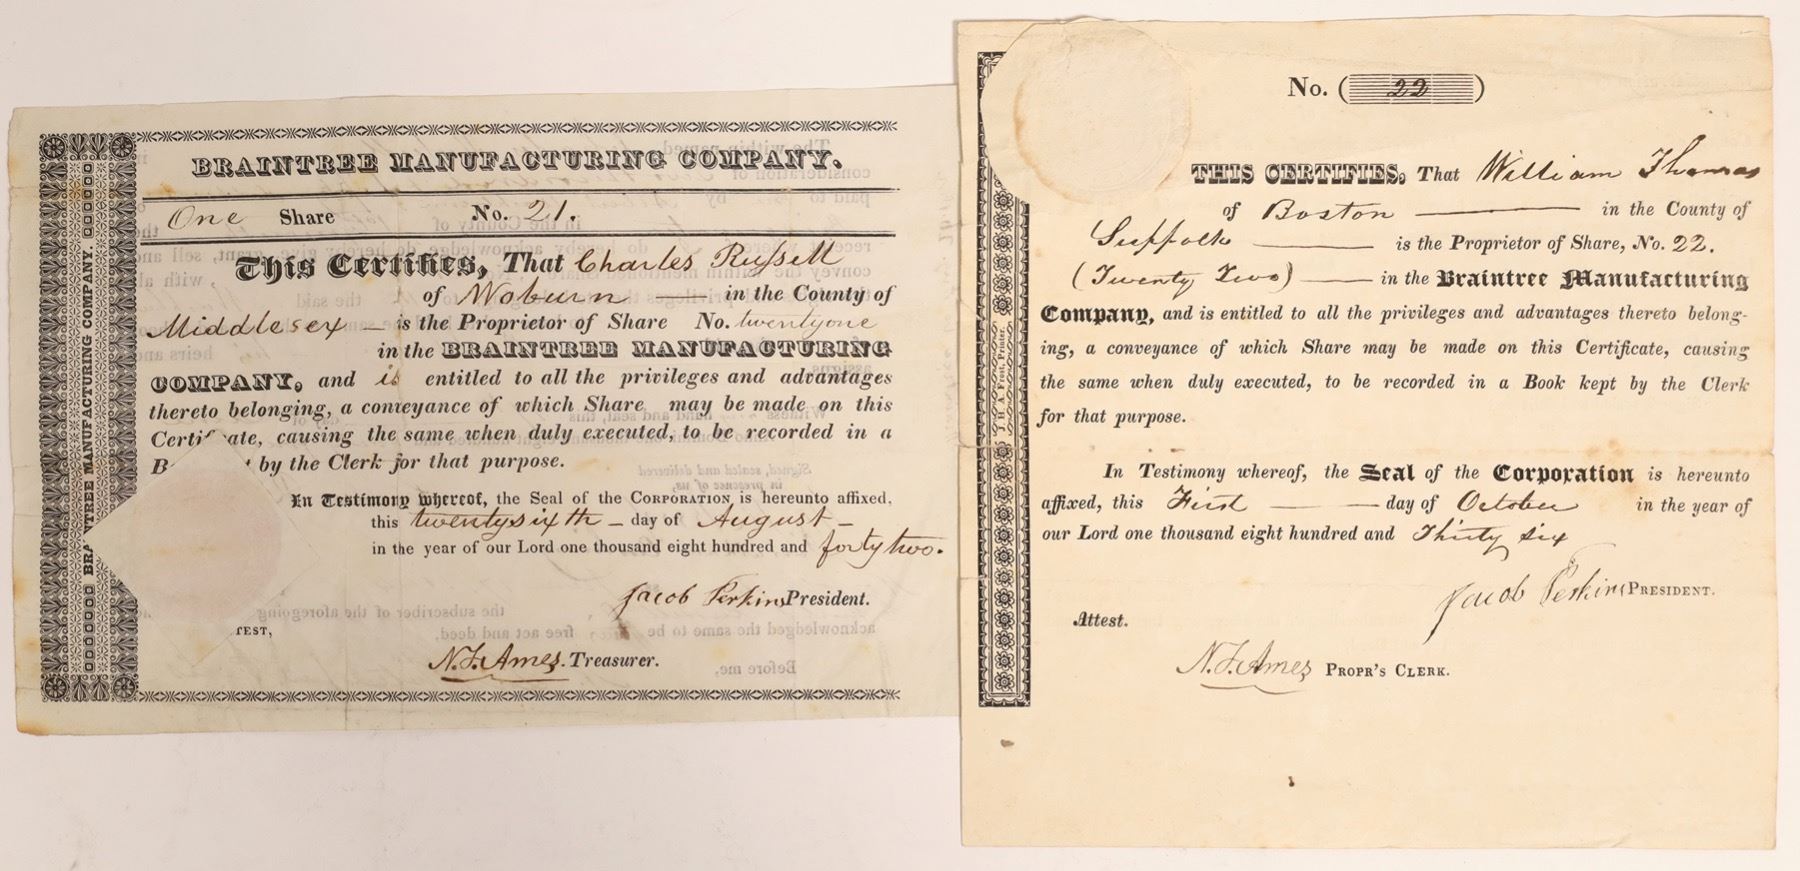 BRAINTREE MANUFACTURING COMPANY.
One Share No. 21.
This Certifies, That Charles Russell
of Woburn in the County of
Middlesex is the Proprietor of Share No. twentyone
in the BRAINTREE MANUFACTURING
COMPANY, and is entitled to all the privileges and advantages
thereto belonging, a conveyance of which Share may be made on this
Certificate, causing the same when duly executed, to be recorded in a
by the Clerk for that purpose.
In Testimony whereof, the Seal of the CORPORATION is hereunto affixed,
this twentysixth day of August
in the year of our Lord one thousand eight hundred and forty two.
Jacob Perkins President.
TEST,
N. F. Ames. Treasurer.
BRAINTREE MANUFACTURING COMPANY. BRAINTREE MANUFACTURING COMPANY.
No. (22)
THIS CERTIFIES, That William Thomas
of Boston in the County of
Suffolk is the Proprietor of Share, No. 22.
(Twenty Two) in the Braintree Manufacturing
Company, and is entitled to all the privileges and advantages thereto belong-
ing, a conveyance of which Share may be made on this Certificate, causing
the same when duly executed, to be recorded in a Book kept by the Clerk
for that purpose.
In Testimony whereof, the Seal of the Corporation is hereunto
affixed, this First day of October in the year of
our Lord one thousand eight hundred and Thirty six
Jacob Perkins PRESIDENT.
Attest.
N. F. Ames PROPR'S CLERK.
J. H. A. Frost, Printer.